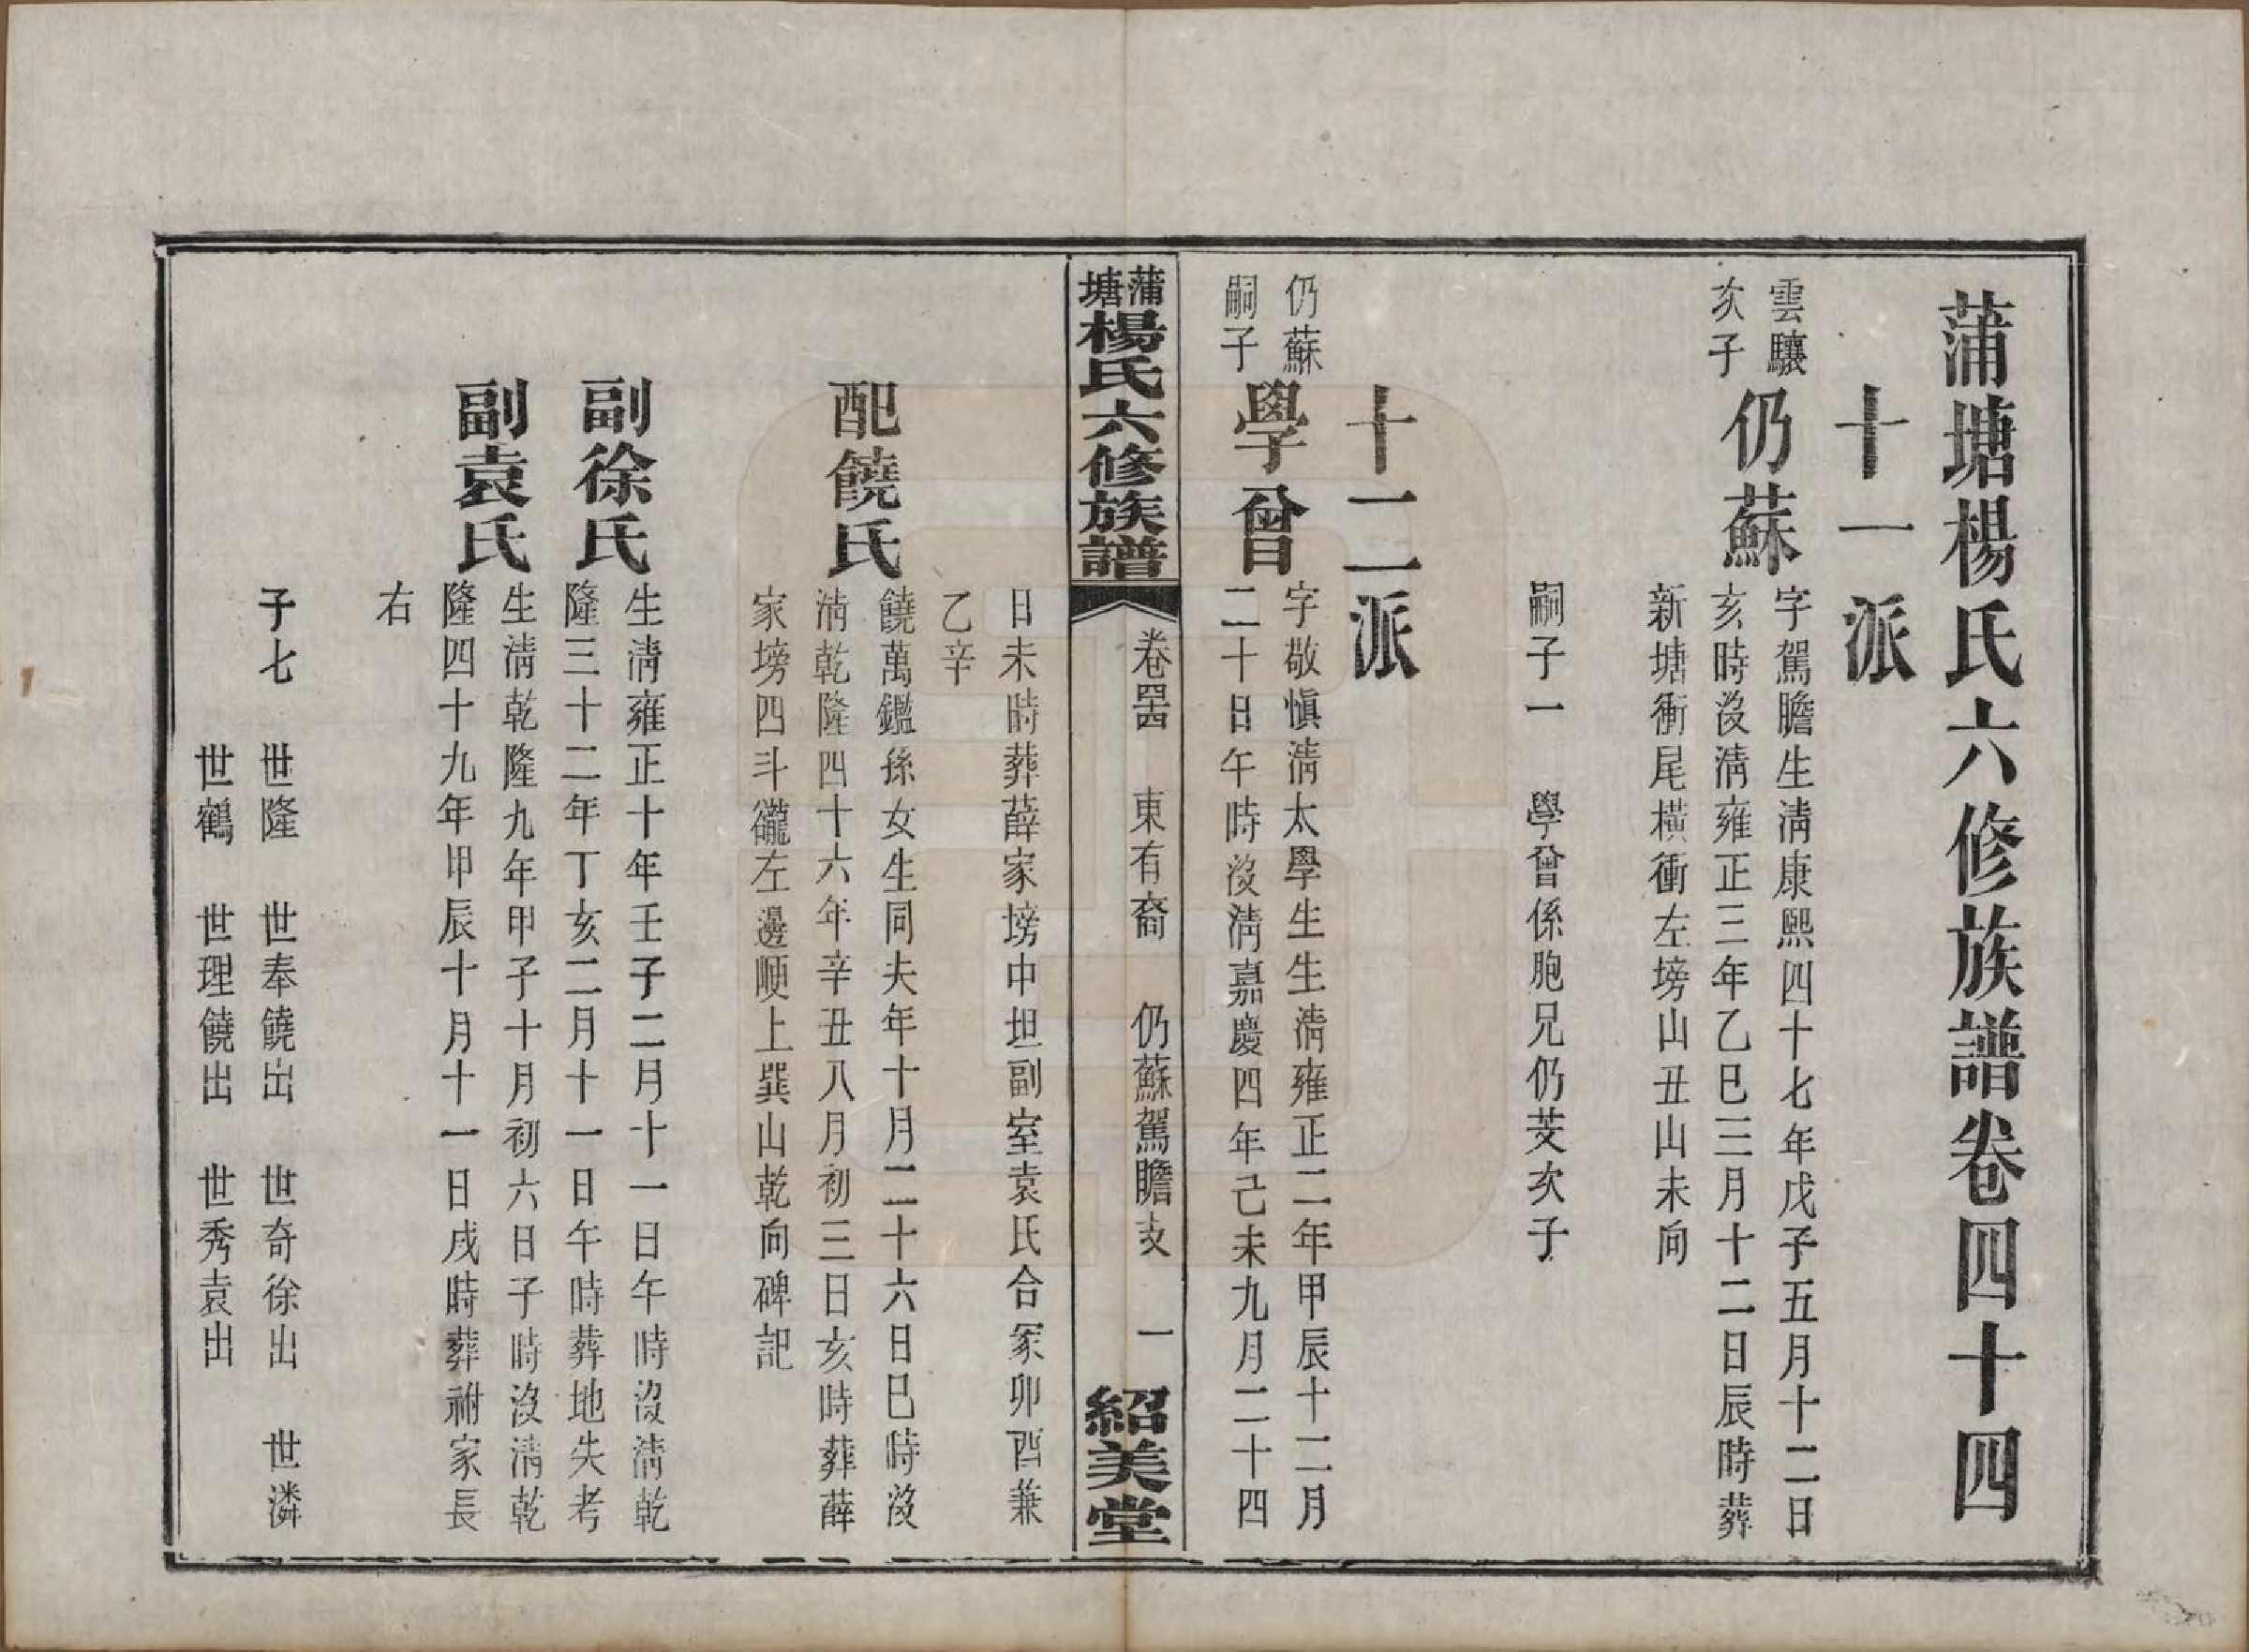 蒲塘楊氏六修族譜卷四十四
十一派
雲驤
次子
仍蘇
字駕瞻生淸康熙四十七年戊子五月十二日
亥時沒淸雍正三年乙巳三月十二日辰時葬
新塘衝尾橫衝左塝山丑山未向
嗣子一　學曾係胞兄仍芟次子
十二派
仍蘇
嗣子
學曾
字敬愼淸太學生生淸雍正二年甲辰十二月
二十日午時沒淸嘉慶四年己未九月二十四
蒲塘楊氏六修族譜　卷四十四　東有裔　仍蘇駕瞻支　一　紹美堂
日未時葬薛家塝中坦副室袁氏合冢卯酉兼
乙辛
配饒氏
饒萬鑑孫女生同夫年十月二十六日巳時沒
淸乾隆四十六年辛丑八月初三日亥時葬薛
家塝四斗礲左邊順上巽山乾向碑記
副徐氏
生淸雍正十年壬子二月十一日午時沒淸乾
隆三十二年丁亥二月十一日午時葬地失考
副袁氏
生淸乾隆九年甲子十月初六日子時沒淸乾
隆四十九年甲辰十月十一日戌時葬祔家長
右
子七　世隆　世奉饒出　世奇徐出　世潾
世鶴　世理饒出　世秀袁出